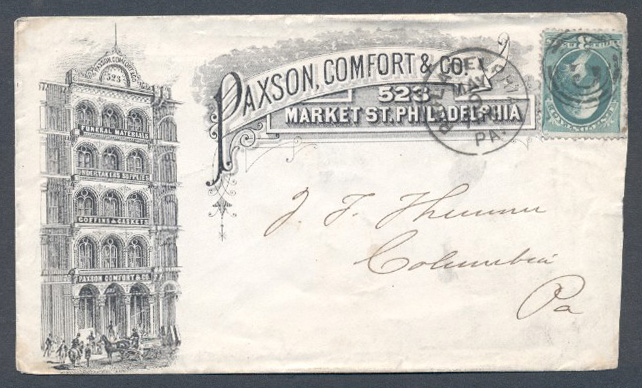 PAXSON, COMFORT & CO.
523
MARKET ST. PHILADELPHIA
PHILADELPHIA
MAY
PA.
PAXSON, COMFORT & CO
523
FUNERAL MATERIALS
UNDERTAKERS SUPPLIES
COFFINS & CASKETS
PAXSON COMFORT & CO.
J. F.
Columbia
Pa